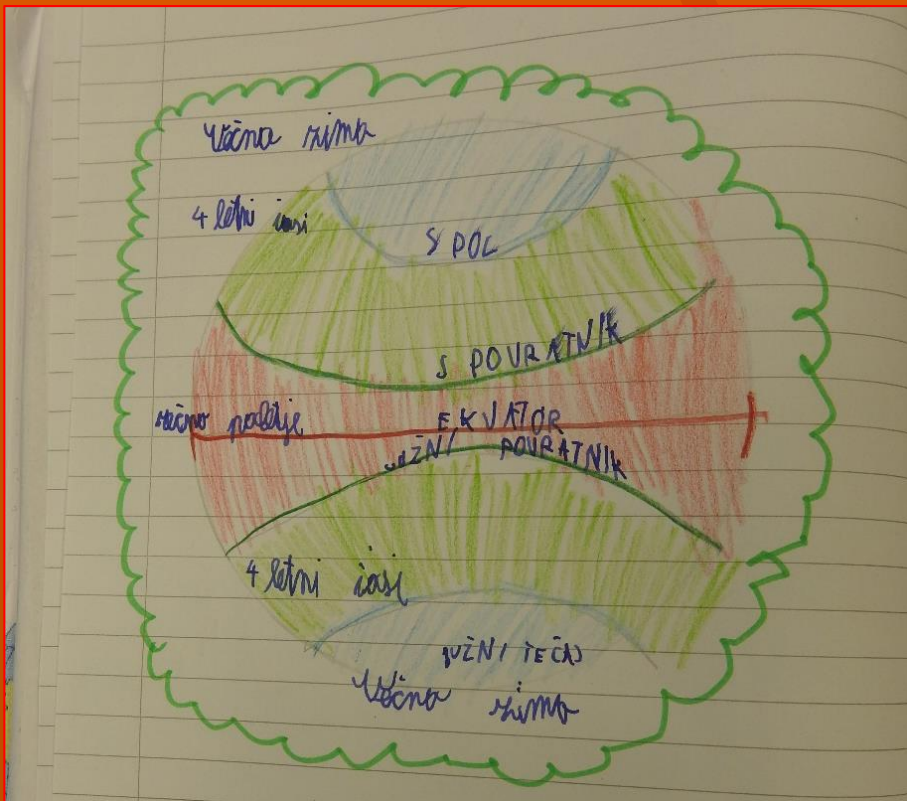 Večna zima
4 letni časi
S POL
S POVRATNIK
EKVATOR
večno poletje
JUŽNI POVRATNIK
4 letni časi
JUŽNI TEČAJ
Večna zima